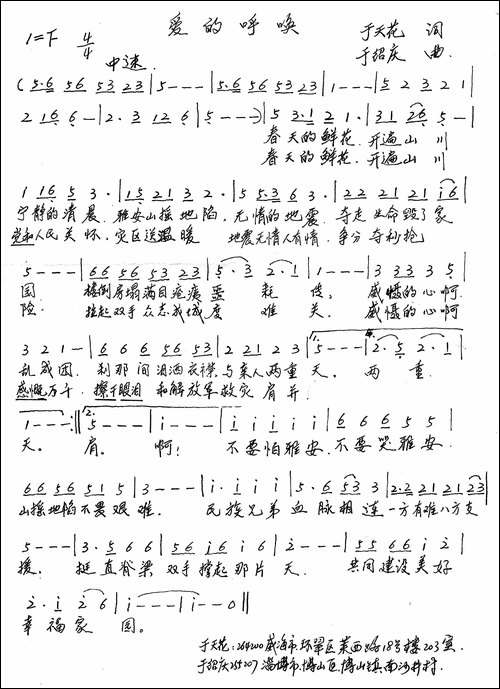 爱的呼唤
1=F 4/4 于天花 词
中速 于绍庆 曲
(5·6 56 53 23 | 5 - - - | 5·6 56 53 23 | 1 - - - | 5 2 3 2 1
2 16 6 - | 2· 3 12 6 | 5 - - -) | 5 3·1 2 1· | 31 26 5 - |
春天的鲜花 开遍山 川
春天的鲜花 开遍山 川
1 16 5 3· | 15 21 3 2· | 5 5·3 6 3· | 22 21 21 16 |
宁静的清晨 雅安山摇地陷 无情的地震 夺走生命毁了家
党和人民关怀 灾区送温暖 地震无情人有情 争分夺秒抢
5 - - - | 66 56 53 23 | 5· 3 2· 1 | 1 - - - | 3 3 3 3 5 |
园 楼倒房塌满目疮痍噩 耗 传 感慨的心啊
险 挽起双手众志成城度 难 关 感慨的心啊
3 2 1 - | 6 6 56 56 53 | 2 21 2 3 | 1. 5 - - - | 2· 5 2· 1 |
乱成团 刹那间泪洒衣襟与亲人两重天 两 重
感慨万千 擦干眼泪 和解放军救灾肩并
1 - - - :|| 2. 5 - - - | i - - - | i i i i i | 6 6 6 5 5 |
天 肩 啊! 不要怕雅安 不要哭雅安
66 56 51 5 | 3 - - - | i· i i i | 5· 6 53 3 | 2·2 21 21 23 |
山摇地陷不畏艰难 民族兄弟血脉相连一方有难八方支
5 - - - | 3· 5 6 6 | 56 i6 i 6 | 2 - - - | 55 66 i 2 |
援 挺直脊梁 双手撑起那片天 共同建设美好
2· i 2 6 | i - - - | i - - 0 ||
幸福家 园
于天花:264200威海市环翠区莱西路18号楼203室
于绍庆255207淄博市博山区博山镇南沙井村